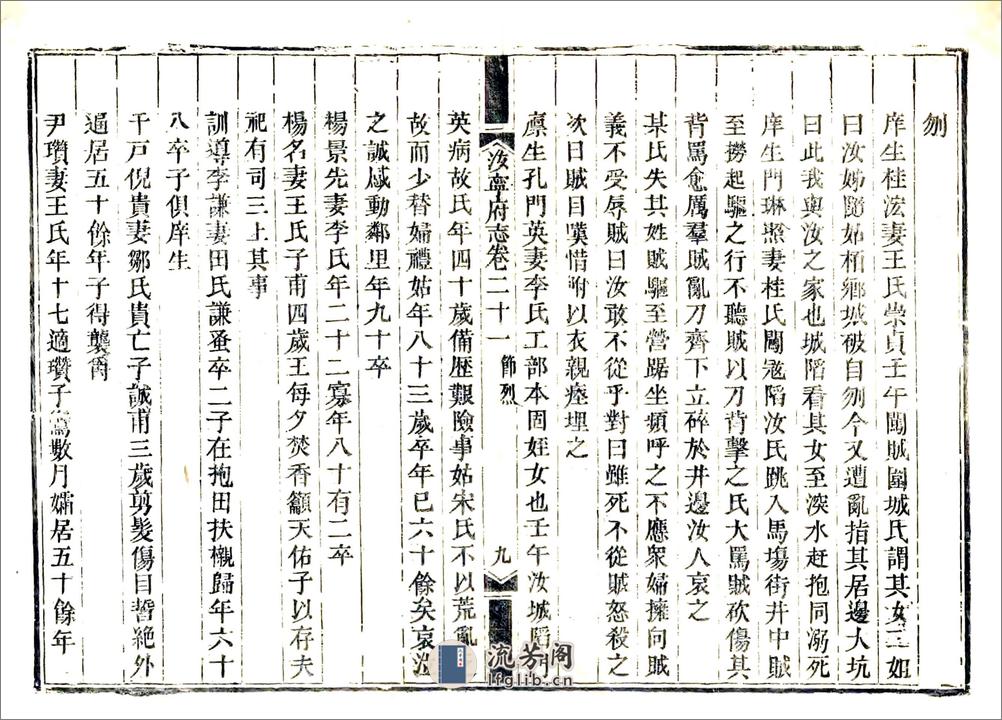 刎
庠生桂浤妻王氏崇貞壬午闖賊圍城氏謂其女三姐
曰汝姊隨姑栢鄉城破自刎今又遭亂指其居邊大坑
曰此我與汝之家也城陷看其女至深水赶抱同溺死
庠生門琳照妻桂氏闖寇陷汝氏跳入馬塲街井中賊
至撈起驅之行不聽賊以刀背擊之氏大罵賊砍傷其
背罵愈厲羣賊亂刀齊下立碎於井邊汝人哀之
某氏失其姓賊驅至營踞坐頻呼之不應衆婦擁向賊
義不受辱賊曰汝敢不從乎對曰雖死不從賊怒殺之
次日賊目嘆惜附以衣親瘞埋之
廪生孔門英妻李氏工部本固姪女也壬午汝城陷門
汝寧府志卷二十一 節烈 九
英病故氏年四十歲備歷艱險事姑宋氏不以荒亂
故而少替婦禮姑年八十三歲卒年已六十餘矣哀泣
之誠感動鄰里年九十卒
楊景先妻李氏年二十二寡年八十有二卒
楊名妻王氏子甫四歲王每夕焚香籲天佑子以存夫
祀有司三上其事
訓導李謙妻田氏謙蚤卒二子在抱田扶櫬歸年六十
八卒子俱庠生
千戸倪貴妻鄒氏貴亡子誠甫三歲剪髮傷目誓絶外
逼居五十餘年子得襲爵
尹瓚妻王氏年十七適瓚子鸞數月孀居五十餘年
流芳阁
lfglib.cn